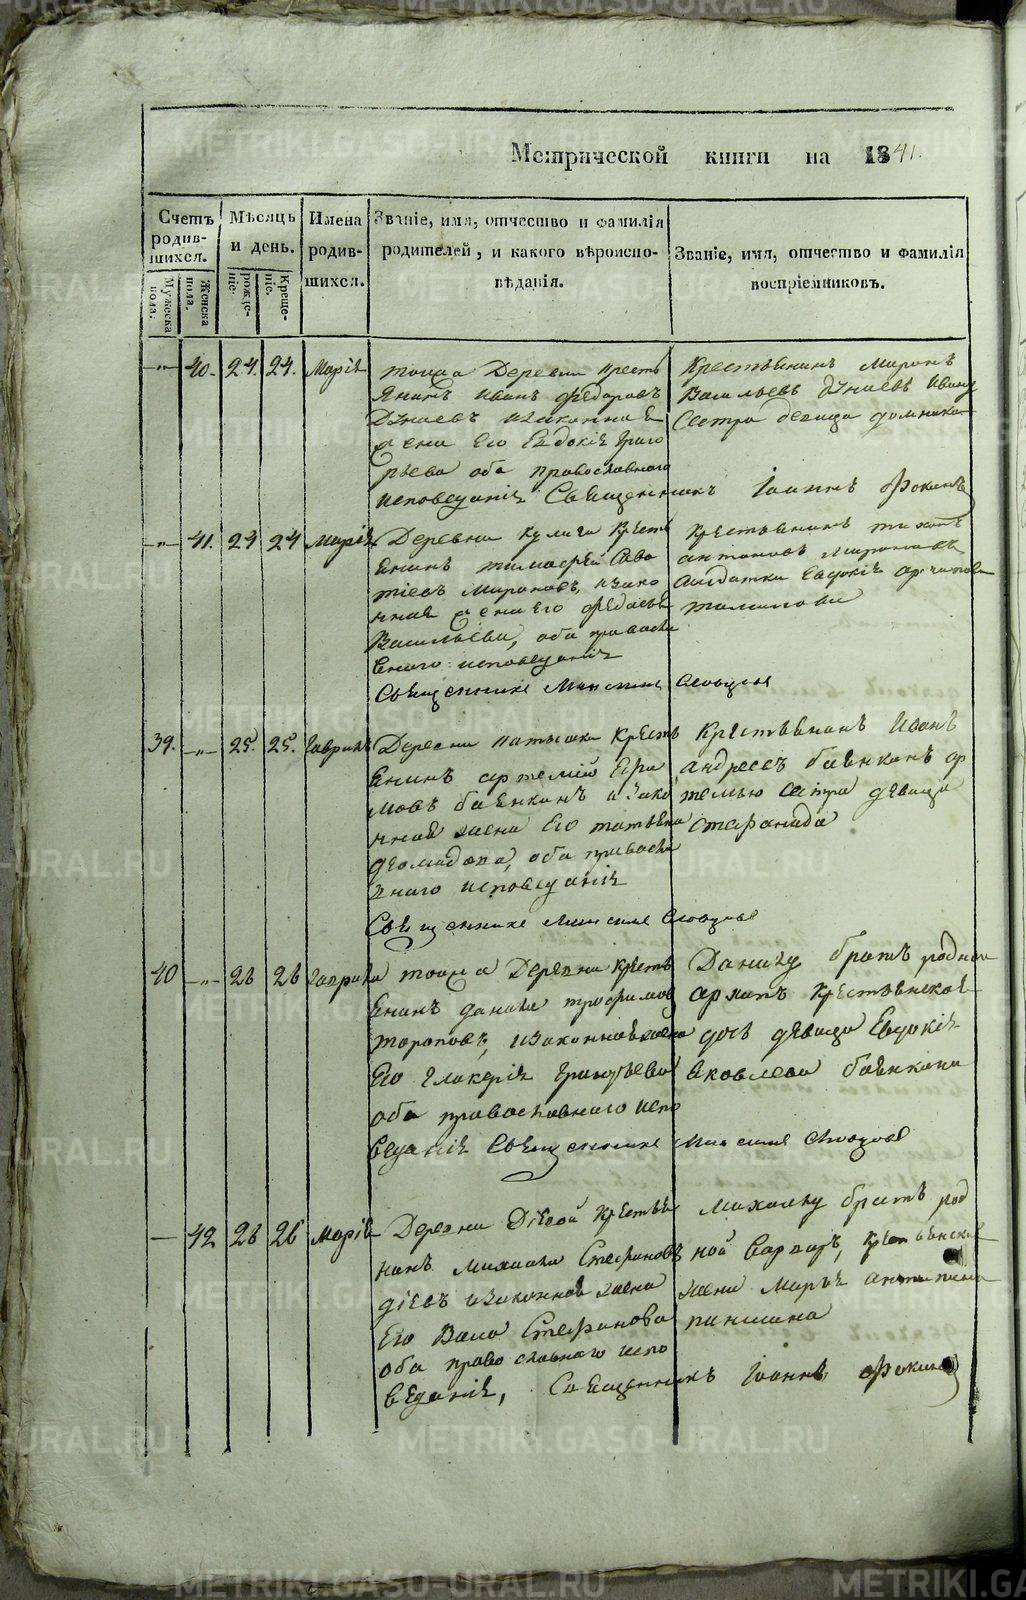 Метрической книги на 1841.
Счетъ родив-шихся.
Мужеска пола.
Женска пола.
Мѣсяцъ и день.
рожде-ніе.
Креще-ніе.
Имена родив-шихся.
Званіе, имя, отчество и фамилія
родителей, и какого вѣроиспо-
вѣданія.
Званіе, имя, отчество и фамилія
воспріемниковъ.
-"- 40. 24. 24. Марія
тоижа Деревни кресть
янинъ Иванъ Федоровъ
изаконная
жена его Евдокія Григо
рьева оба православнаго
исповеданія Священникъ Іоаннъ Фокинъ
Крестьянинъ Миронъ
Васильевъ Ивану
Сестра девица домника
-"- 41. 24 24 Марія
Деревни Кулига Кресть
янинъ тимофей Сава
тіевъ Мироновъ, изако
нная жена его Федосья
Васильева, оба правосла
внаго исповеданія
Священникъ Словцовъ
Крестьянинъ тихонъ
антоновъ Мироновъ
Солдатка Евдокія
39. -"- 25. 25. Гавриилъ
Деревни Кресть
янинъ артемій Ера
мовъ бабкинъ изако
нная жена Его татьяна
диомидова, оба правосла
внаго исповеданія
Священникъ Словцовъ
Крестьянинъ Иванъ
андреевъ бабкинъ ар
темью Сестра девица
Степанида
40 -"- 26 26 Гавриилъ
тоижа Деревни Кресть
янинъ данила трофимовъ
тороповъ, изаконная жена
Его Гликерія Григорьева
оба православнаго испо
веданія Священникъ Словцовъ
Данилу братъ родной
архипъ Крестьянская
дочь девица Евдокія
яковлева бабкина
- 42 26 26 Марія
Деревни Діевой Крестья
нинъ Михаила Стефановъ
діевъ изаконная жена
Его Васа Стефанова
оба православнаго испо
веданія, Священникъ Іоаннъ Фокинъ
Михаилу братъ род
ной Карпъ, Крестьянская
жена Марья